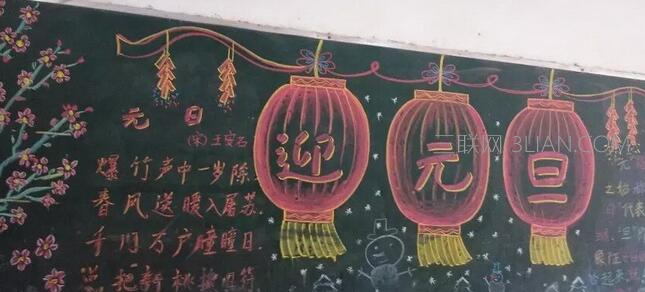 元日
(宋)王安石
爆竹声中一岁除
春风送暖入屠苏.
千门万户瞳瞳日.
把新桃换旧符
迎元旦
三联网 3LIAN.COM
元
之始
代表